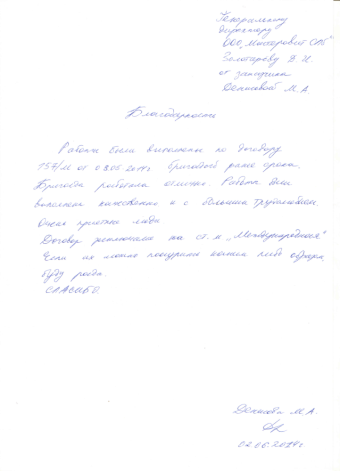 Генеральному
директору
ООО „Мастеровит СПб"
Золотареву В. И.
от заказчика
Денисовой М. А
Благодарность
Работа была выполнена по договору
157/М от 03.05.2014г бригадой ранее срока.
Бригада работала отлично. Работа была
выполнена качественно и с большим трудолюбием.
Очень приятные люди
Договор заключали на ст. м „Международная"
Если их можно поощрить каким либо образом,
буду рада.
СПАСИБО.
Денисова М. А.
02.06.2014г.